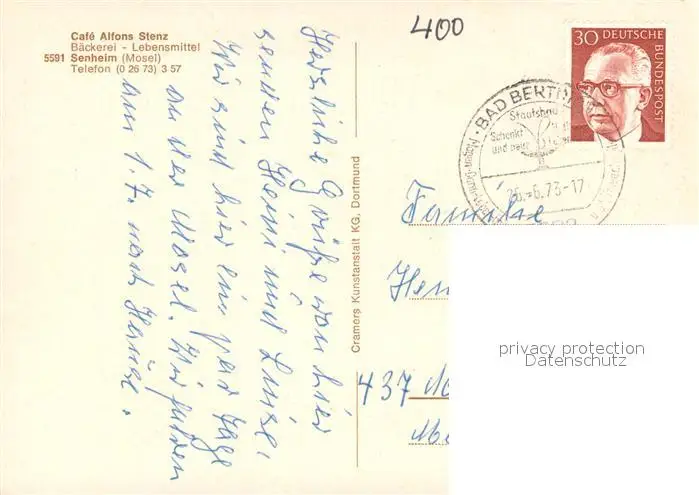 Café Alfons Stenz
Bäckerei - Lebensmittel
5591 Senheim (Mosel)
Telefon (0 26 73) 3 57
400
30 DEUTSCHE
BUNDESPOST
BAD BERTRICH
Staatsbad
Schenkt
und neue
26.-6.73-17
Herzliche Grüße von hier
senden Heini und Luise.
Wir sind hier ein paar Tage
an der Mosel. Wir fahren
am 1.7. nach Hause.
Cramers Kunstanstalt KG, Dortmund
Familie
437
privacy protection
Datenschutz